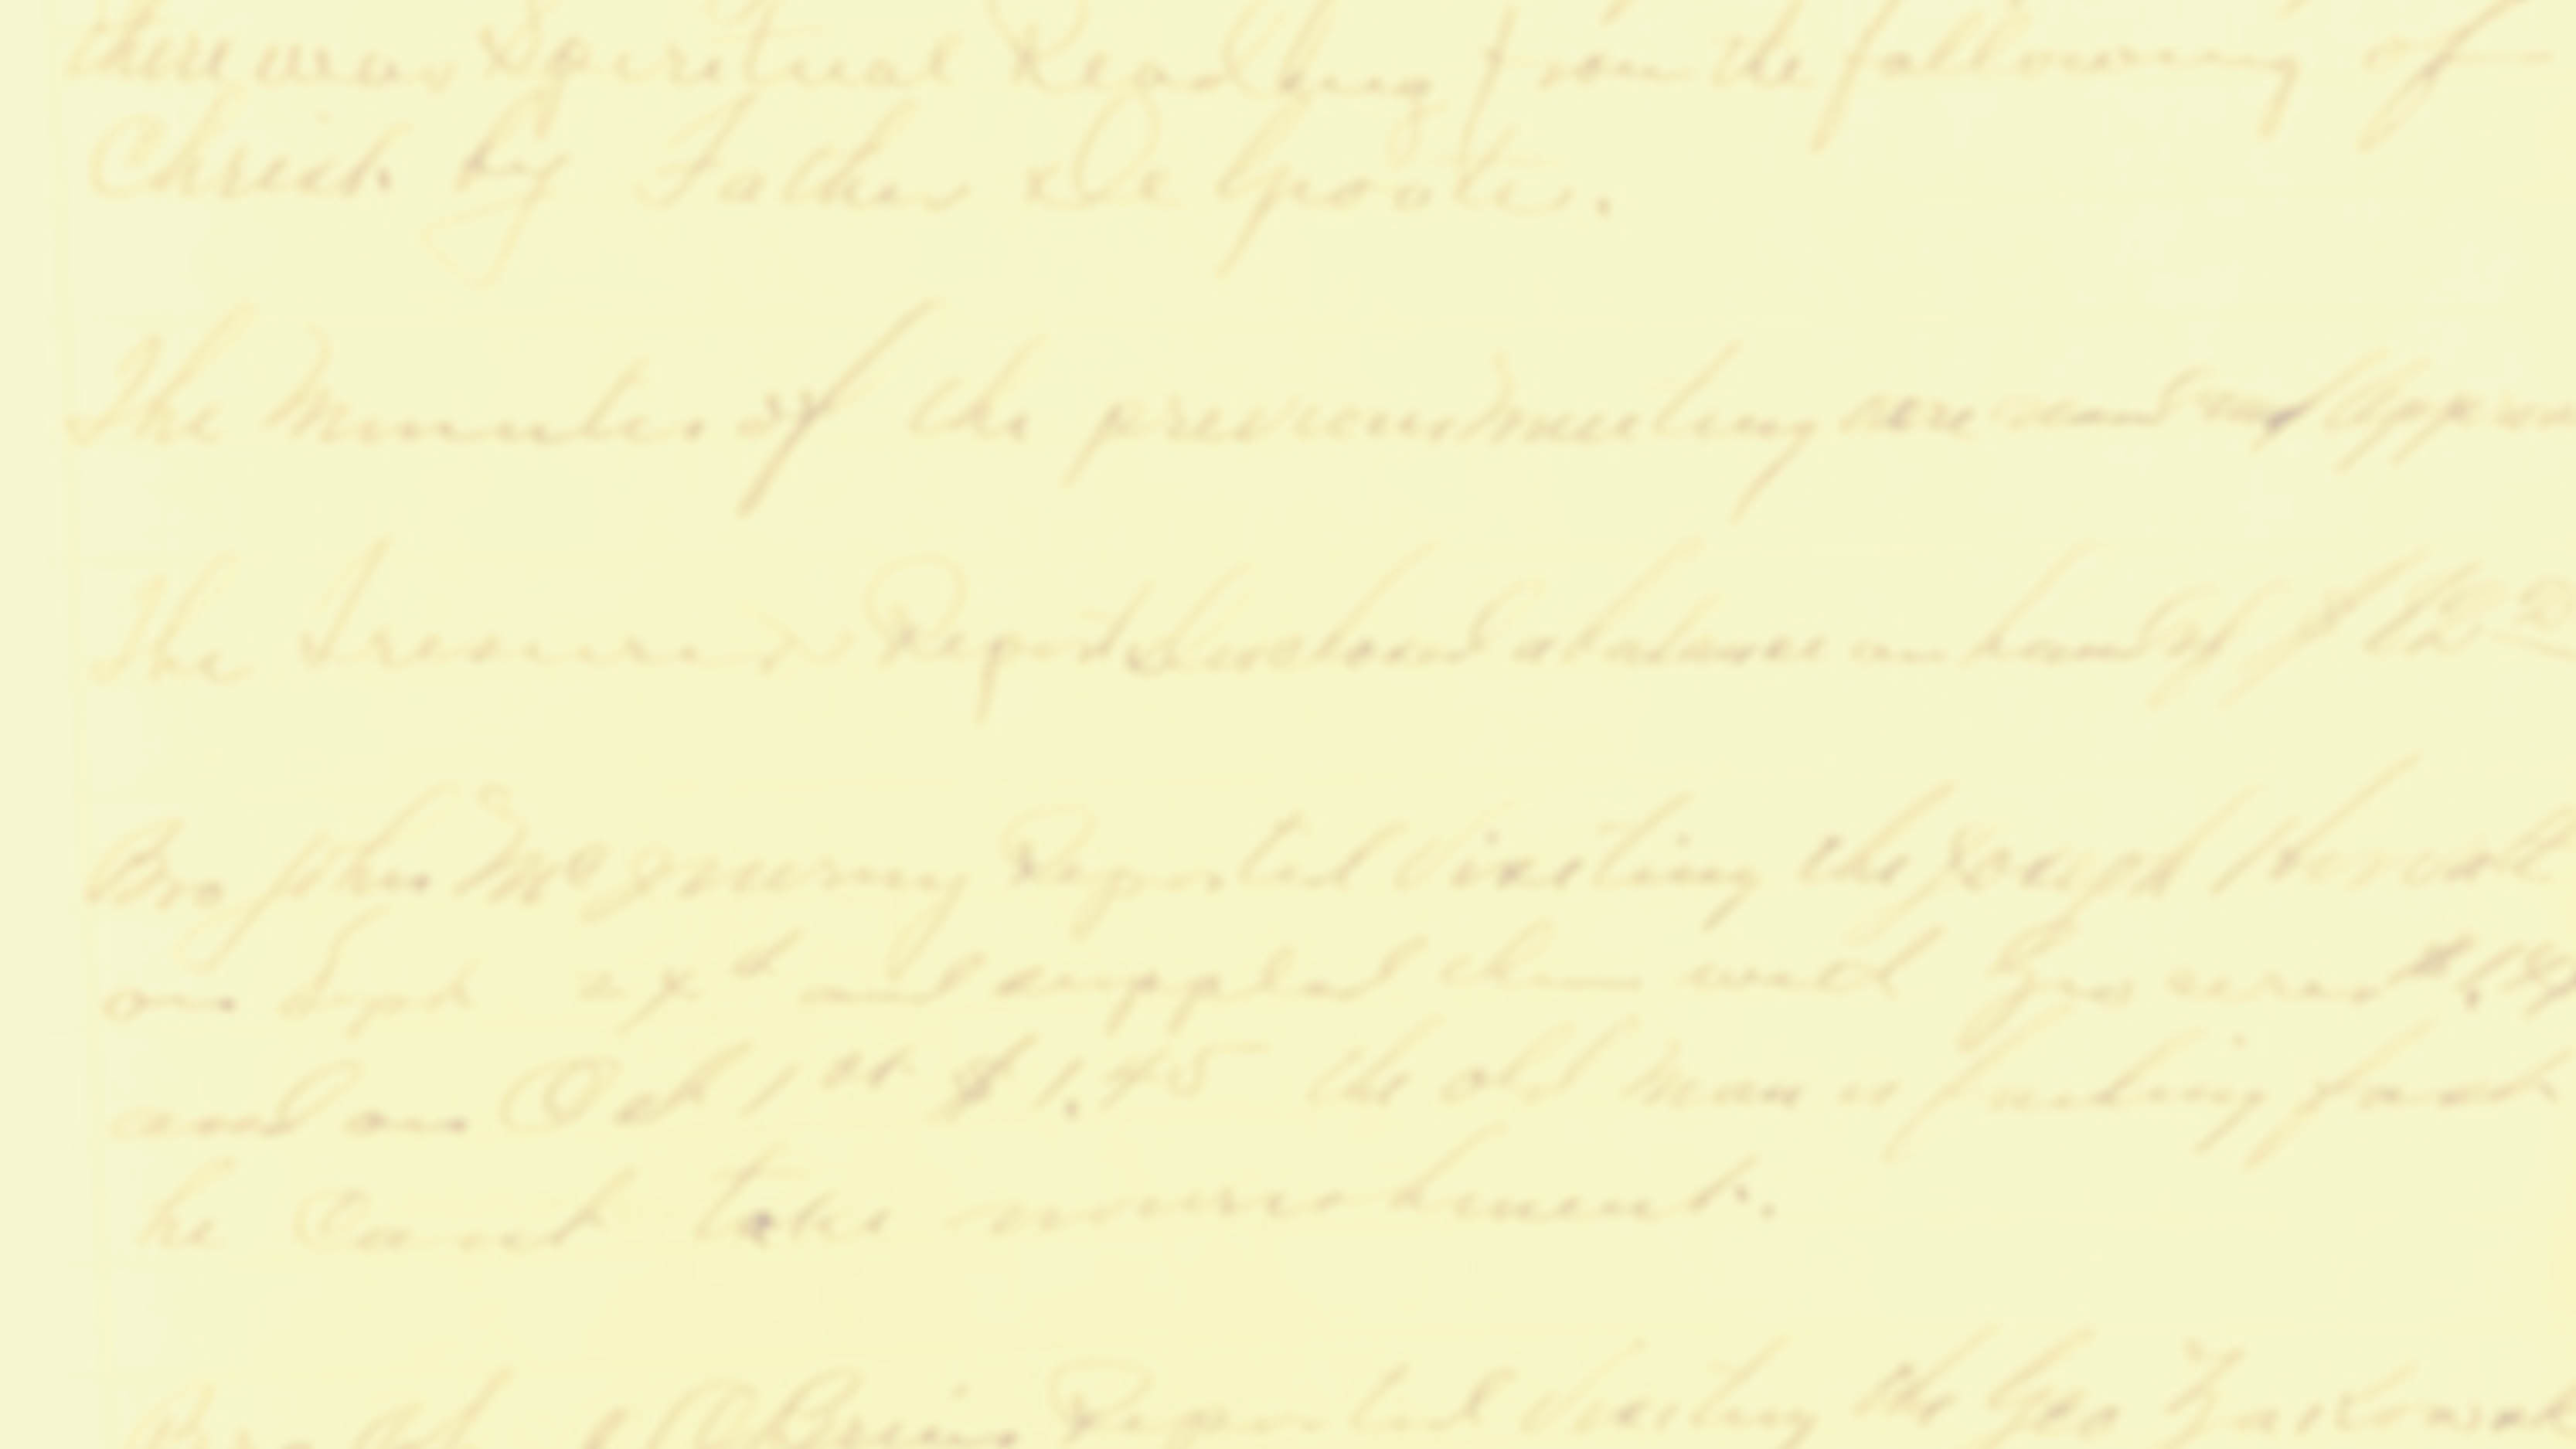 there was Spiritual Reading from the following of
Christ. by Father De Groote.
The Minutes of the previous meeting were and
The Treasurers Report Showed a balance on hand of
Bro John McGreevy Reported Visiting the Joseph
on Sept 24th and supplied them with Groceries
and on Oct 1st $1.45 the old man is failing fast
he Cant take nourishment.
O Brien Reported Visiting the Geo